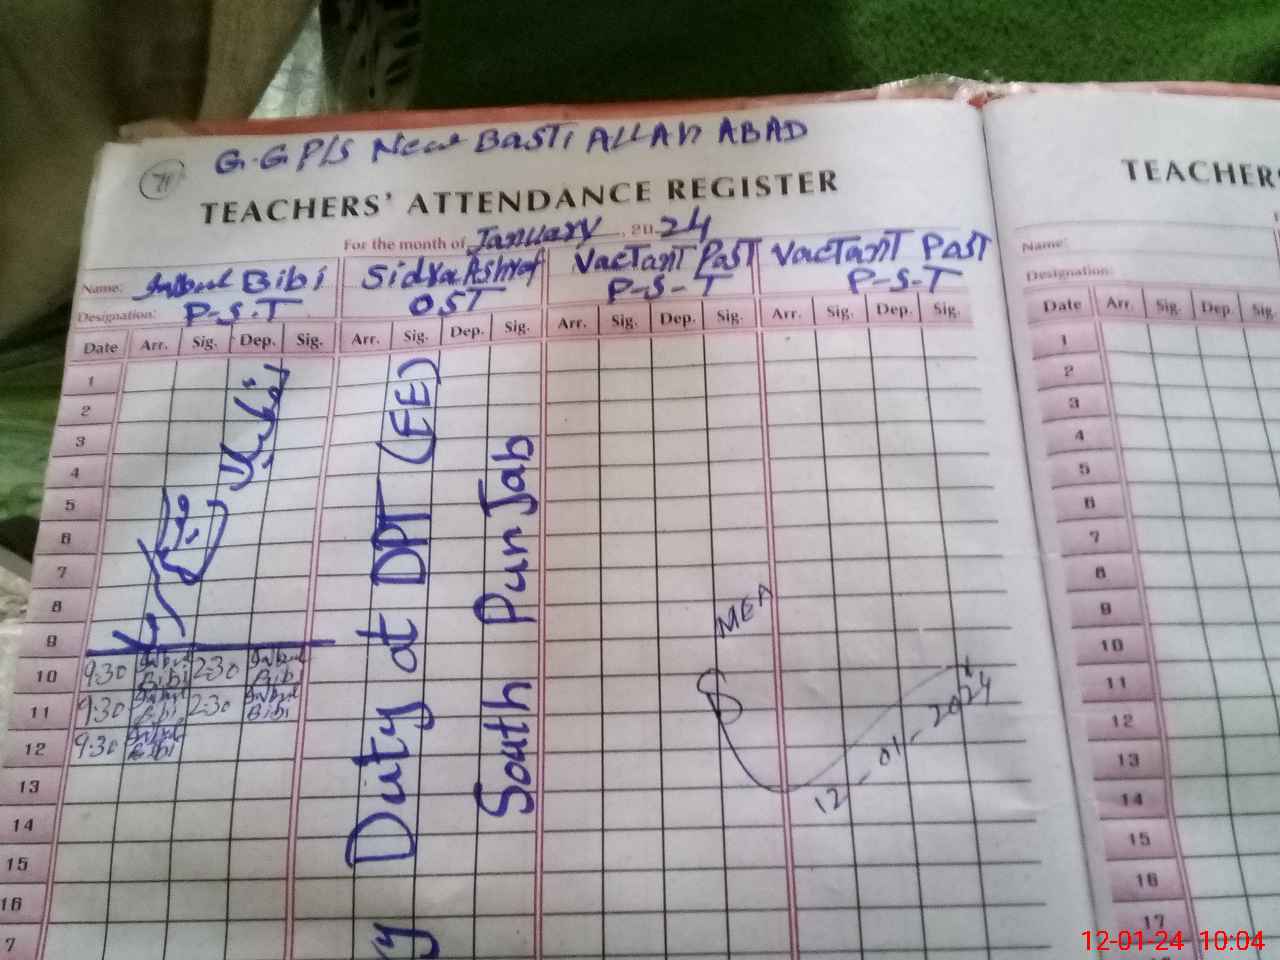 G.GP/S New BasTi ALLAH ABAD
TEACHERS' ATTENDANCE REGISTER
For the month of January, 2024
Name: Bibi
Sidra Ashraf
VacTanT Past
VacTanT Past
Designation: P-S-T
OST
P-S-T
P-S-T
Date Arr. Sig. Dep. Sig. Arr. Sig. Dep. Sig. Arr. Sig. Dep. Sig. Arr. Sig. Dep. Sig.
1
2
3
4
5
6
7
8
9
10 9:30 Bibi 2:30 Bibi
11 9:30 Bibi 2:30 Bibi
12 9:30 Bibi
13
14
15
16
7
Duty at DPI (EE)
South PunJab
MEA
12-01-2024
TEACHERS
Name:
Designation:
Date Arr. Sig. Dep. Sig.
1
2
3
4
5
6
7
8
9
10
11
12
13
14
15
16
17
12-01-24 10:04